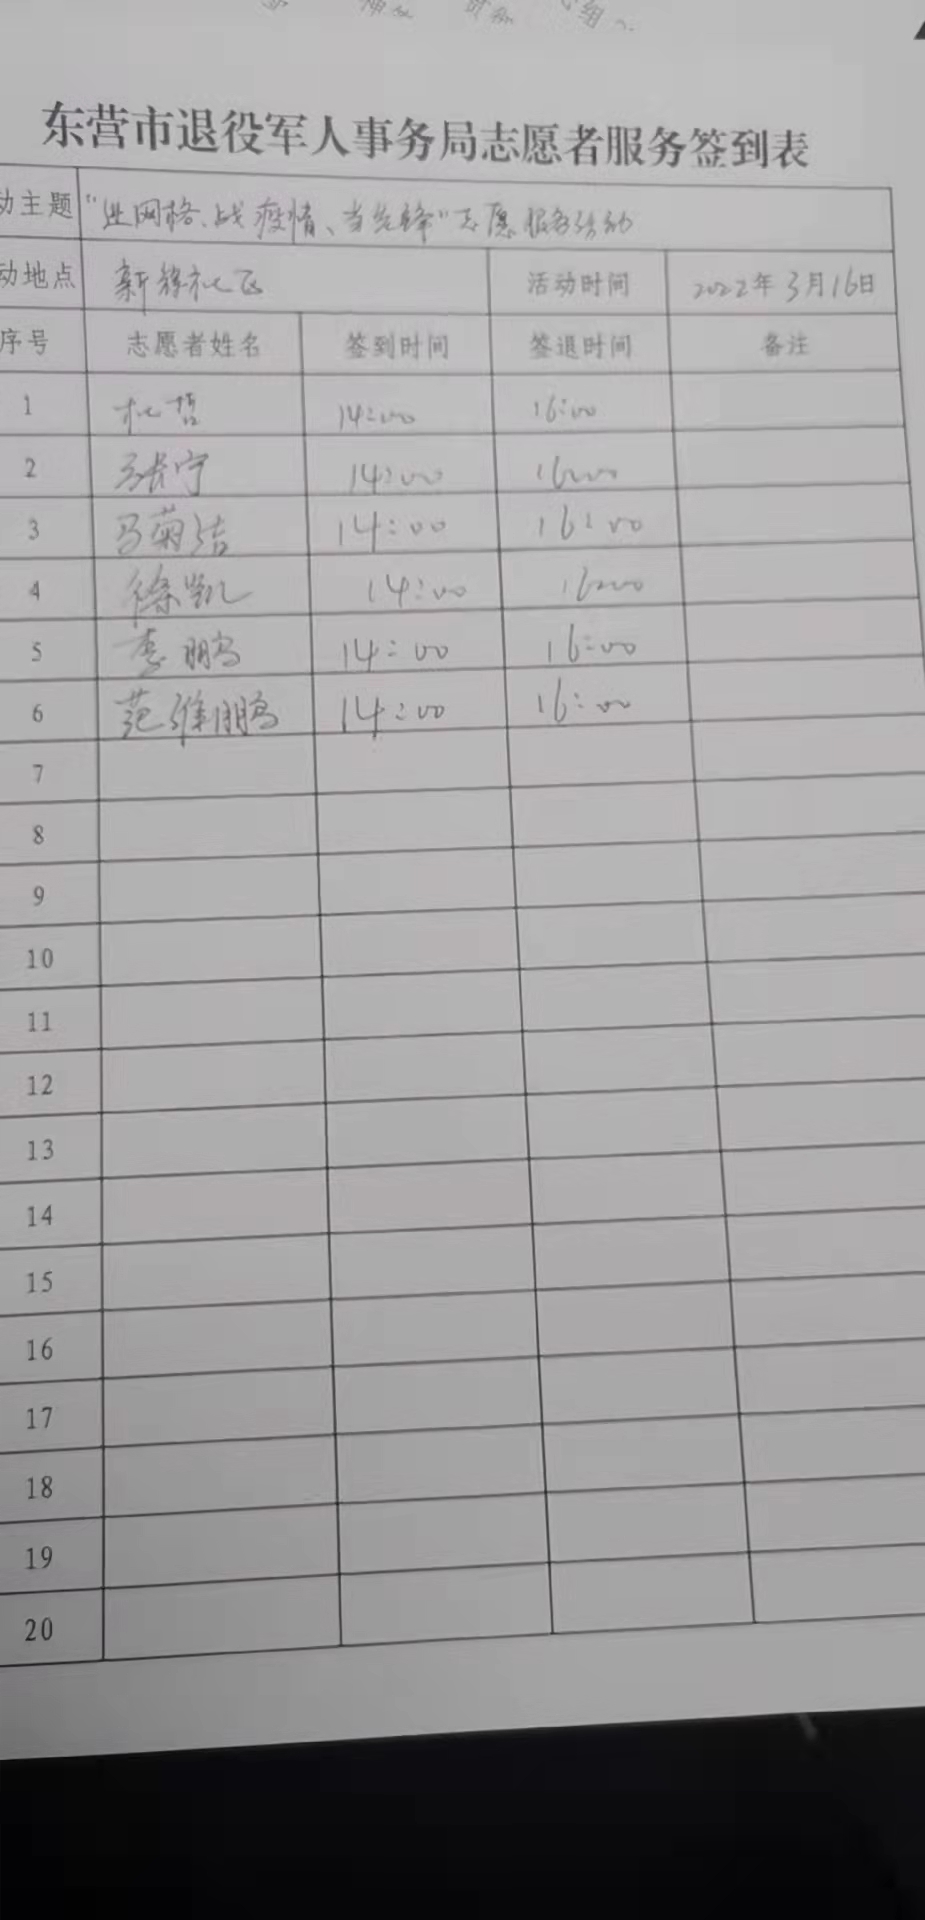 东营市退役军人事务局志愿者服务签到表
动主题 "进网格、战疫情、当先锋"志愿服务活动
动地点 新 社区 活动时间 2022年3月16日
序号 志愿者姓名 签到时间 签退时间 备注
1 杜哲 14:00 16:00
2 张宁 14:00 16:00
3 马菊洁 14:00 16:00
4 徐凯 14:00 16:00
5 李鹏 14:00 16:00
6 范维鹏 14:00 16:00
7
8
9
10
11
12
13
14
15
16
17
18
19
20